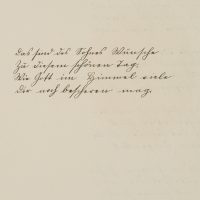 Das sind des Sohnes Wünsche
Zu diesem schönen Tag;
Die Gott im Himmel viele
Dir noch bescheren mag.